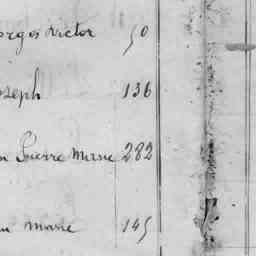 orges Victor 50
oseph 136
n Pierre Marie 282
n Marie 145